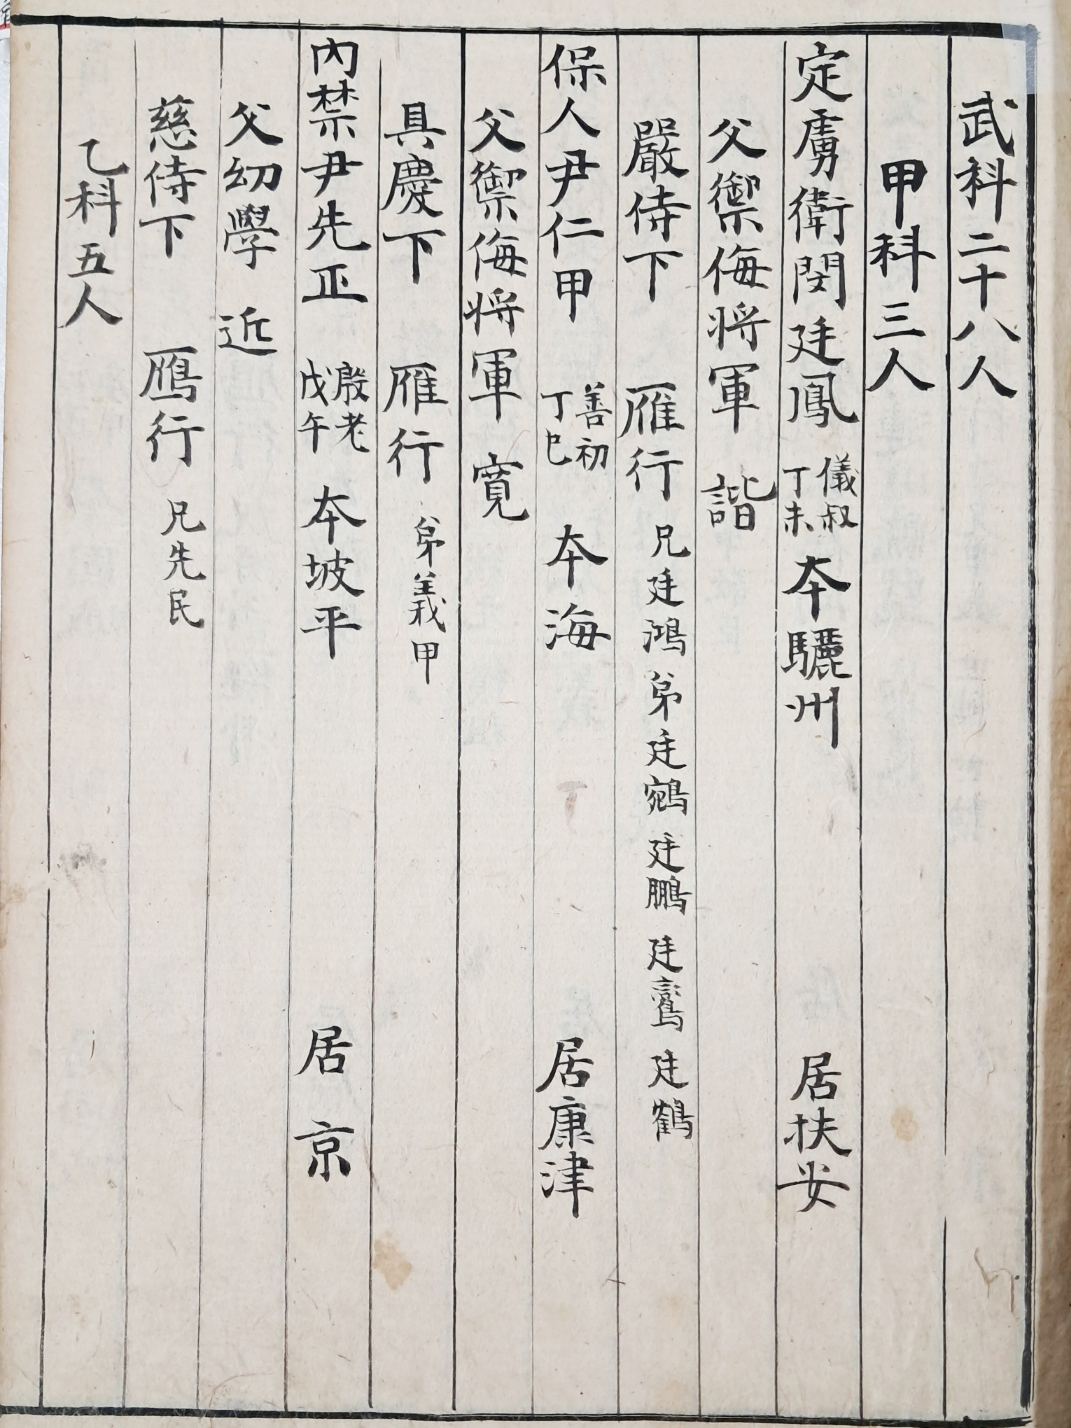 武科二十八人
甲科三人
定虜衛閔廷鳳 儀叔 丁未 本驪州 居扶安
父禦侮将軍 諧
嚴侍下 雁行 兄廷鴻 弟廷鵷 廷鵬 廷鸞 廷鶴
保人尹仁甲 善初 丁巳 本海 居康津
父禦侮将軍 寬
具慶下 雁行 弟義甲
內禁尹先正 殷老 戊午 本坡平 居京
父幼學 近
慈侍下 鴈行 兄先民
乙科五人